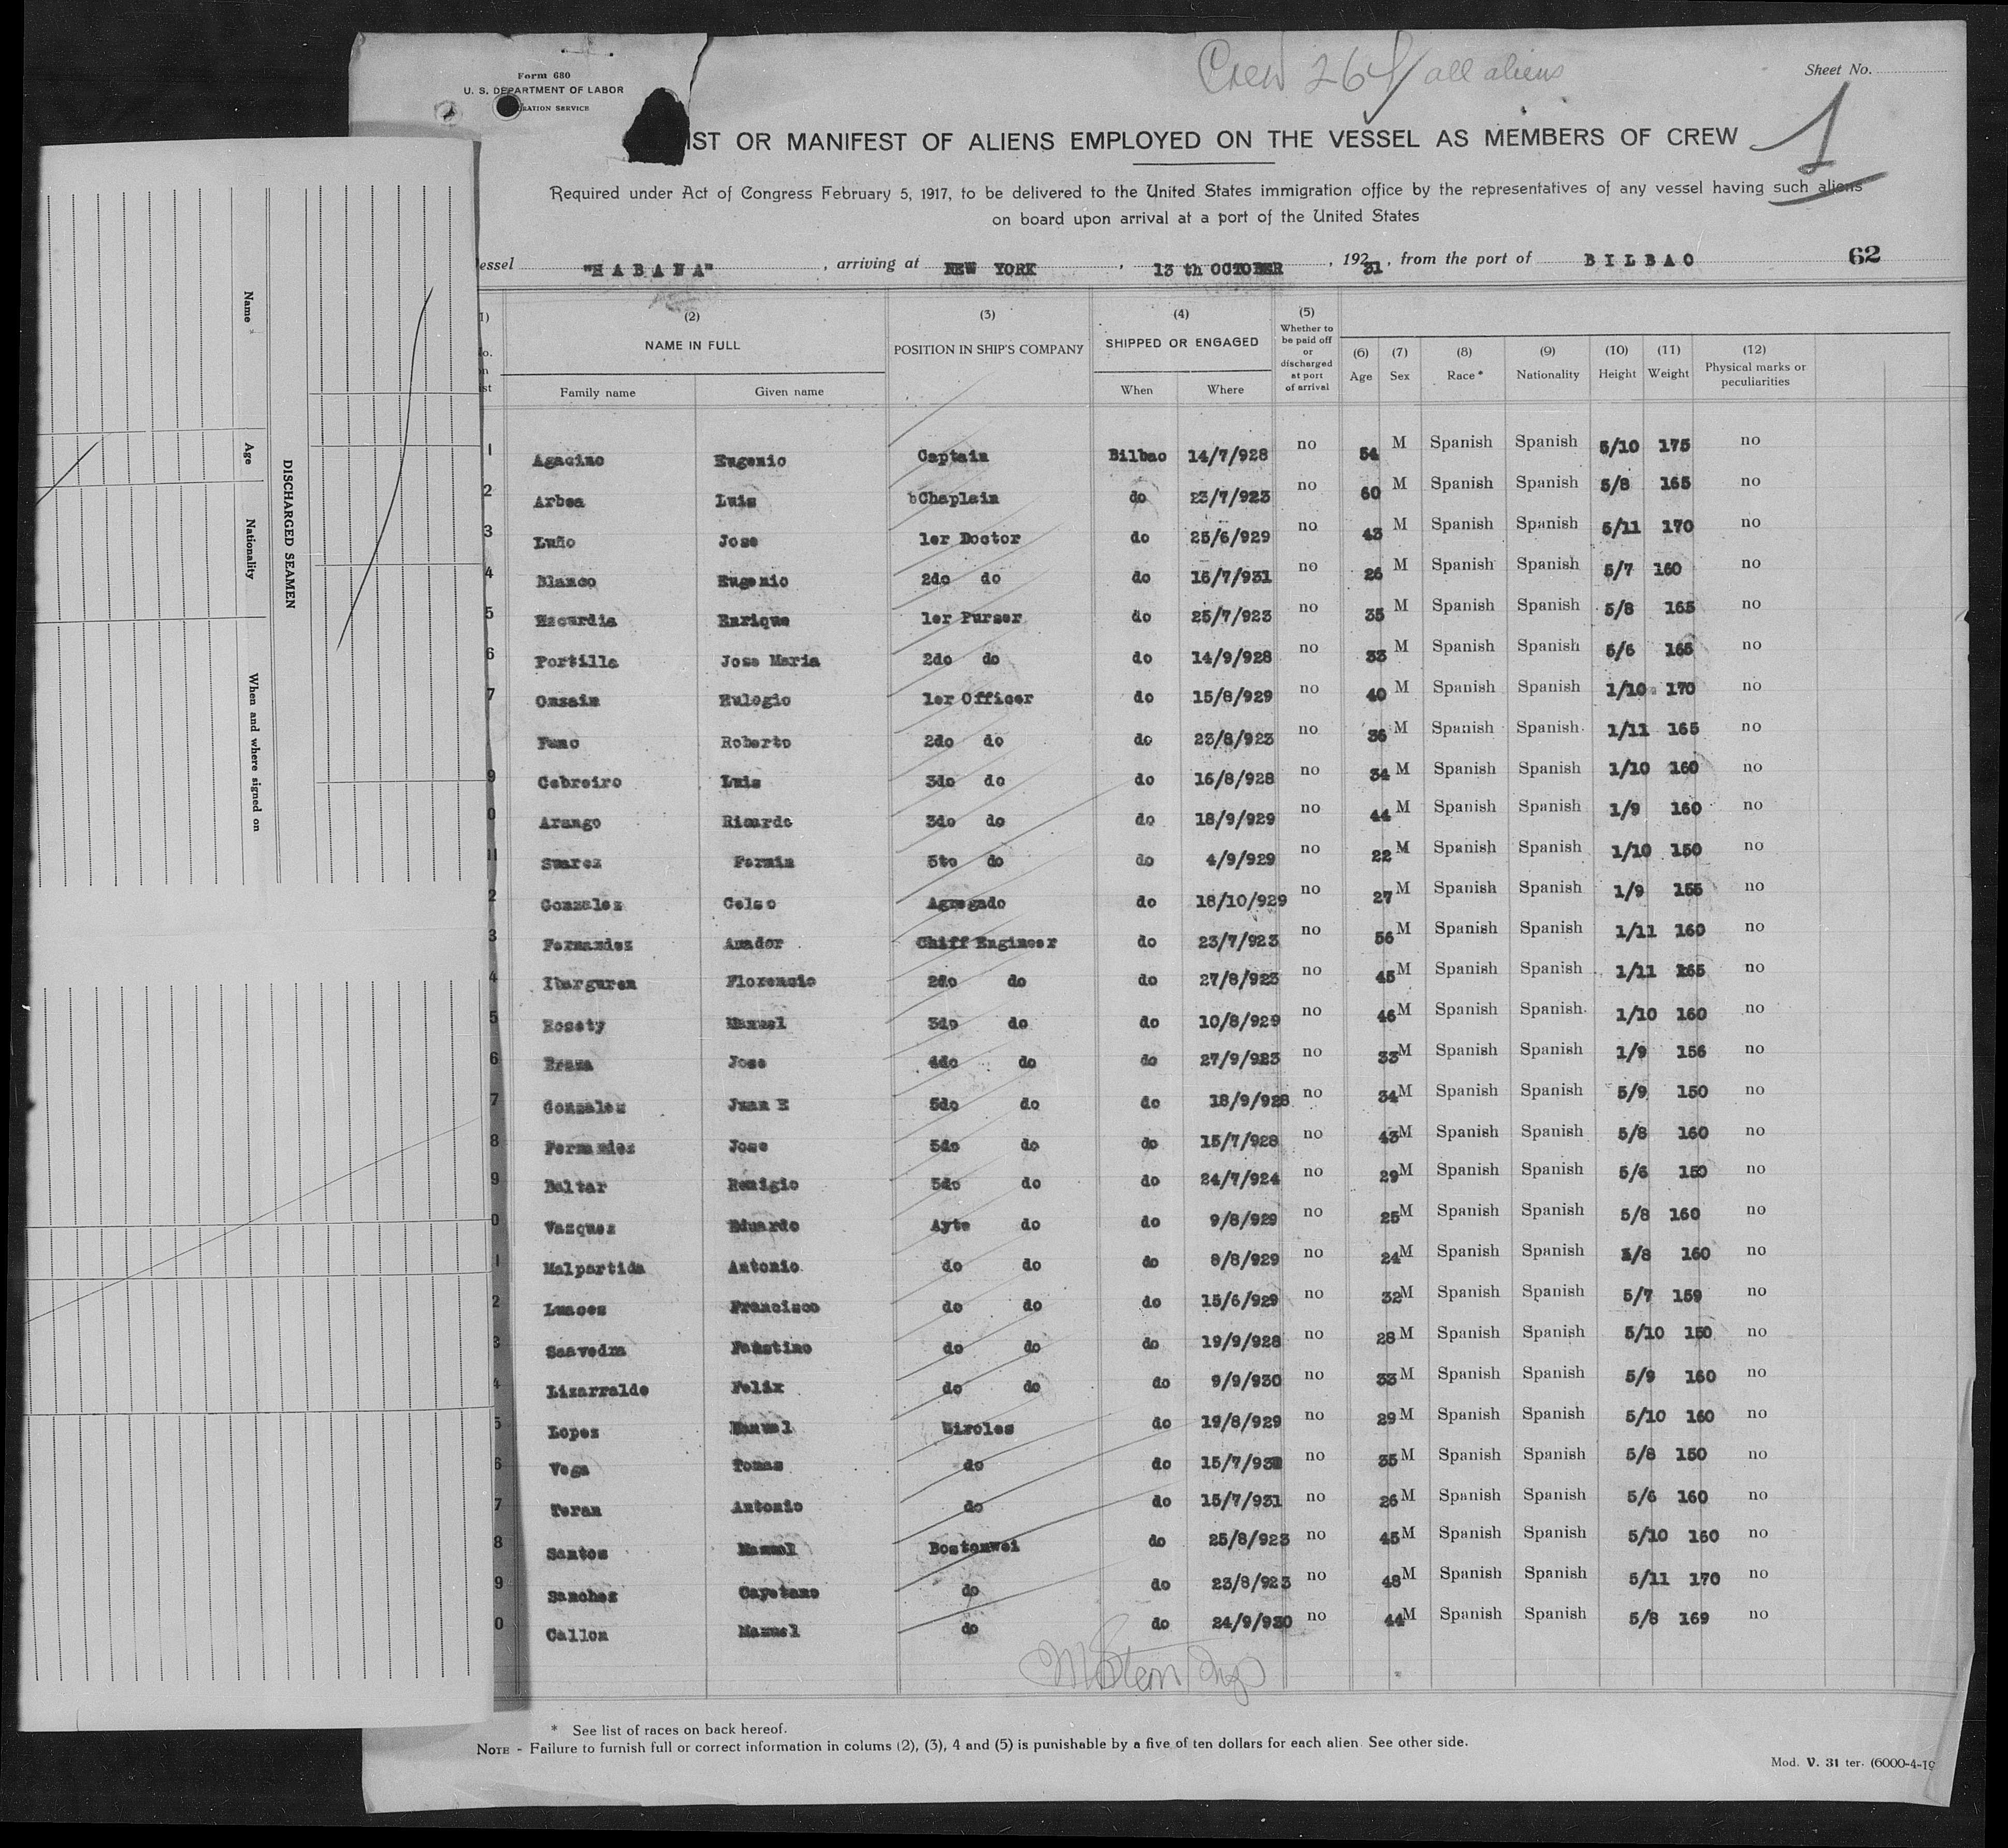 Form 680
U. S. DEPARTMENT OF LABOR
RATION SERVICE
Crew 264 all aliens
Sheet No.
1
IST OR MANIFEST OF ALIENS EMPLOYED ON THE VESSEL AS MEMBERS OF CREW
Required under Act of Congress February 5, 1917, to be delivered to the United States immigration office by the representatives of any vessel having such aliens
on board upon arrival at a port of the United States
essel "HABANA", arriving at NEW YORK, 13 th OCTOBER, 19231, from the port of BILBAO 62
(2) NAME IN FULL (3) POSITION IN SHIP'S COMPANY (4) SHIPPED OR ENGAGED (5) Whether to be paid off or discharged at port of arrival (6) Age (7) Sex (8) Race * (9) Nationality (10) Height (11) Weight (12) Physical marks or peculiarities
Family name Given name When Where
1 Agacino Eugenio Captain Bilbao 14/7/928 no 54 M Spanish Spanish 5/10 175 no
2 Arbea Luis bChaplain do 23/7/923 no 60 M Spanish Spanish 5/8 165 no
3 Luño Jose 1er Doctor do 25/6/929 no 43 M Spanish Spanish 5/11 170 no
4 Blanco Eugenio 2do do do 15/7/931 no 26 M Spanish Spanish 5/7 160 no
5 Escurdia Enrique 1er Purser do 25/7/923 no 35 M Spanish Spanish 5/8 165 no
6 Portilla Jose Maria 2do do do 14/9/928 no 33 M Spanish Spanish 5/6 165 no
7 Onzain Eulogio 1er Officer do 15/8/929 no 40 M Spanish Spanish 1/10 170 no
Fano Roberto 2do do do 23/8/923 no 36 M Spanish Spanish 1/11 165 no
9 Cebreiro Luis 3do do do 16/8/928 no 34 M Spanish Spanish 1/10 160 no
0 Arango Ricardo 3do do do 18/9/929 no 44 M Spanish Spanish 1/9 160 no
11 Suarez Fermin 5to do do 4/9/929 no 22 M Spanish Spanish 1/10 150 no
2 Gonzalez Celso Agregado do 18/10/929 no 27 M Spanish Spanish 1/9 155 no
3 Fernandez Amador Chiff Engineer do 23/7/923 no 56 M Spanish Spanish 1/11 160 no
4 Ibarguren Florencio 2do do do 27/8/923 no 45 M Spanish Spanish 1/11 165 no
5 Rosety Manuel 3do do do 10/8/929 no 46 M Spanish Spanish 1/10 160 no
6 Eraza Jose 4do do do 27/9/923 no 33 M Spanish Spanish 1/9 156 no
7 Gonzalez Juan E 5do do do 18/9/928 no 34 M Spanish Spanish 5/9 150 no
8 Fernandez Jose 5do do do 15/7/928 no 43 M Spanish Spanish 5/8 160 no
9 Baltar Remigio 5do do do 24/7/924 no 29 M Spanish Spanish 5/6 150 no
0 Vazquez Eduardo Ayte do do 9/8/929 no 25 M Spanish Spanish 5/8 160 no
1 Malpartida Antonio do do do 8/8/929 no 24 M Spanish Spanish 5/8 160 no
2 Luaces Francisco do do do 15/6/929 no 32 M Spanish Spanish 5/7 159 no
3 Saavedra Faustino do do do 19/9/928 no 28 M Spanish Spanish 5/10 150 no
4 Lizarralde Felix do do do 9/9/930 no 33 M Spanish Spanish 5/9 160 no
5 Lopez Manuel Wireles do 19/8/929 no 29 M Spanish Spanish 5/10 160 no
6 Vega Tomas do do 15/7/93 no 35 M Spanish Spanish 5/8 150 no
7 Teran Antonio do do 15/7/931 no 26 M Spanish Spanish 5/6 160 no
8 Santos Manuel Bostonwei do 25/8/923 no 45 M Spanish Spanish 5/10 160 no
9 Sanchez Cayetano do do 23/8/923 no 48 M Spanish Spanish 5/11 170 no
0 Callon Manuel do do 24/9/930 no 44 M Spanish Spanish 5/8 169 no
* See list of races on back hereof.
NOTE - Failure to furnish full or correct information in colums (2), (3), 4 and (5) is punishable by a five of ten dollars for each alien. See other side.
Mod. V. 31 ter. (6000-4-19
DISCHARGED SEAMEN
Name Age Nationality When and where signed on